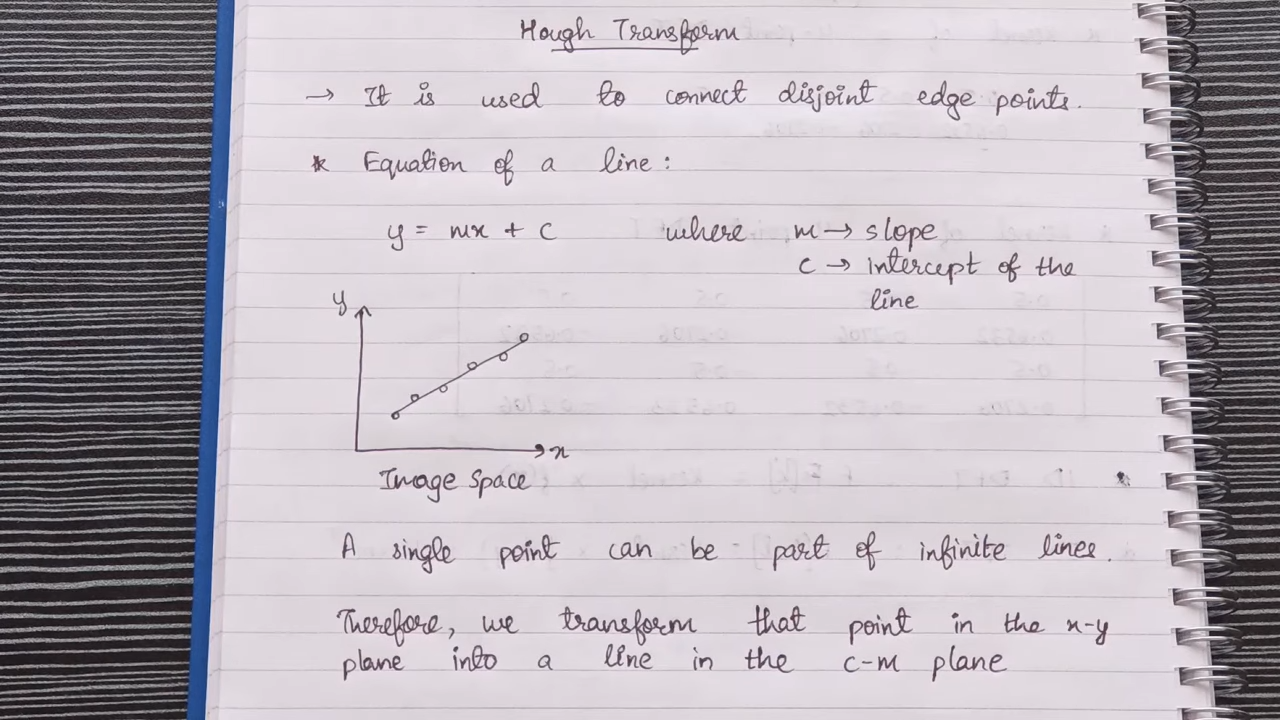 Hough Transform
→ It is used to connect disjoint edge points.
* Equation of a line :
y = mx + c where m → slope
c → intercept of the
line
y
x
Image Space
A single point can be part of infinite lines.
Therefore, we transform that point in the x-y
plane into a line in the c-m plane